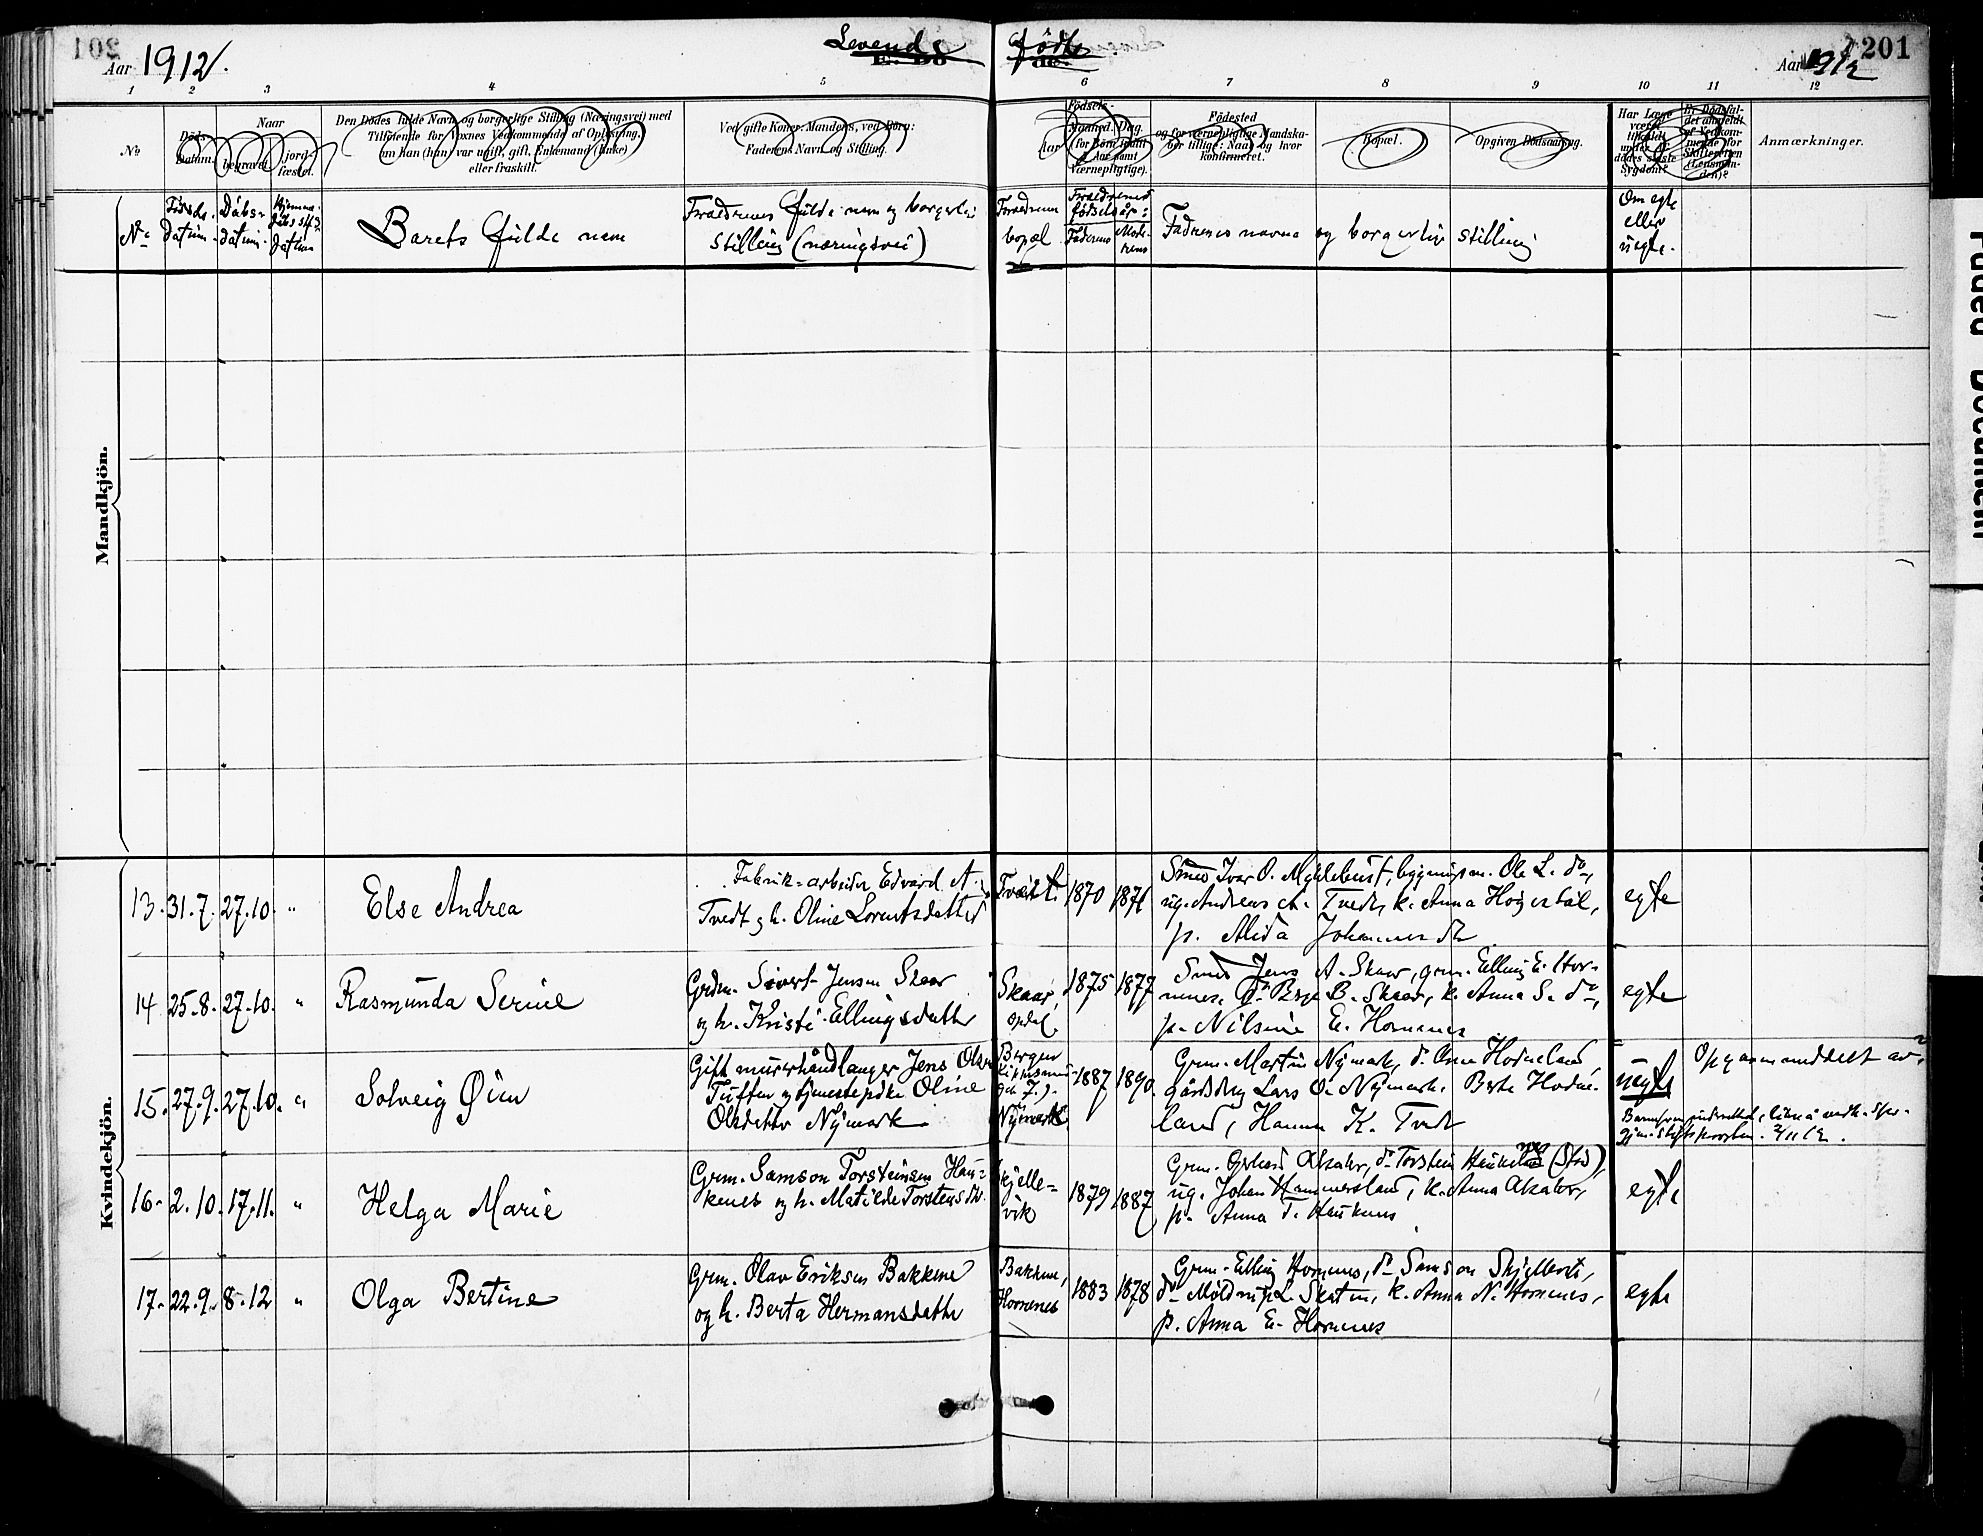 Aar 1912.
Levende
fødte.
Aar 1912
201
1 2 3 4 5 6 7 8 9 10 11 12
No
Døds-Datum.
Naar
begravet.
jord-fæstet.
Den Dødes fulde Navn og borgerlige Stilling (Næringsvei) med
Tilføiende for Voxnes Vedkommende af Oplysning,
om han (hun) var ugift, gift, Enkemand (Enke)
eller fraskilt.
Ved gifte Koner: Mandens, ved Børn:
Faderens Navn og Stilling.
Fødsels-
Aar
Maaned. Dag.
(for Børn indtil
2 Aar samt
Værnepligtige).
Fødested
og for værnepligtige Mandska-
ber tillige: Naar og hvor
konfirmeret.
Bopæl.
Opgiven Dødsaarsag.
Har Læge
været
tilkaldt
under den
dødes sidste
Sygdom?
Er Dødsfal-
det anmeldt
af Vedkom-
mende for
Skifteretten
(Lensman-
den)?
Anmærkninger.
No
Fødsels-datum.
Dåbs-datum.
Hjemme-dåbs datum
Barets fulde navn
Forældrenes fulde navn og borgerlig
stilling (næringsvei)
Forældrenes
bopæl
Forældrenes
fødselsår:
Faderens
Mode-
rens
Fadrenes navne og borgerlige stilling
Om egte
eller
uegte.
Mandkjön.
Kvindekjön.
13. 31.7. 27.10. "
Else Andrea
Fabrik-arbeider Edvard A.
Tvedt og h. Oline Lorentsdatter
Tvedt.
1870
1876
Smed Ivar O. Myklebust, bygningsm. Ole L. do,
ug. Andreas A. Tvedt, k. Anna Høgestøl,
p. Alida Johannesdtr
egte
14 25.8. 27.10. "
Rasmunda Serine
Grdm. Sivert Jensen Skaar
og h. Kristi Ellingsdatter
Skaar,
Opdal.
1875
1877
Smed Jens A. Skaar, grm. Elling E. Hor-
nenes, do Børge B. Skaar, k. Anna S. do,
p. Nilsine E. Hornenes
egte
15. 27.9. 27.10. "
Solveig Øien
Gift murerhåndlanger Jens Olsen
Tuften og tjenestepike Oline
Olsdatter Nymark
Bergen
Nymark
1887
1890.
Grm. Martin Nymark, do Arne Hodneland,
gårddrg Lars O. Nymark. Berte Hodne-
land, Hanna K. Tvedt
uegte
16. 2.10. 17.11. "
Helga Marie
Grm. Samson Torsteinsen Hau-
kenes og h. Matilde Torstensdtr.
Skjelle-
vik
1879
1887
ug. Johan Hammersland, k. Anna Akahr,
p. Anna T. Haukenes
egte
17. 22.9. 8.12 "
Olga Bertine
Grm. Olav Eriksen Bakkene
og h. Berta Hermansdatter
Bakkene,
Hornenes
1883
1878
Grm. Elling Hornenes, do Samson Skjellevik,
k. Anna N. Hornenes,
p. Anna E. Hornenes
egte